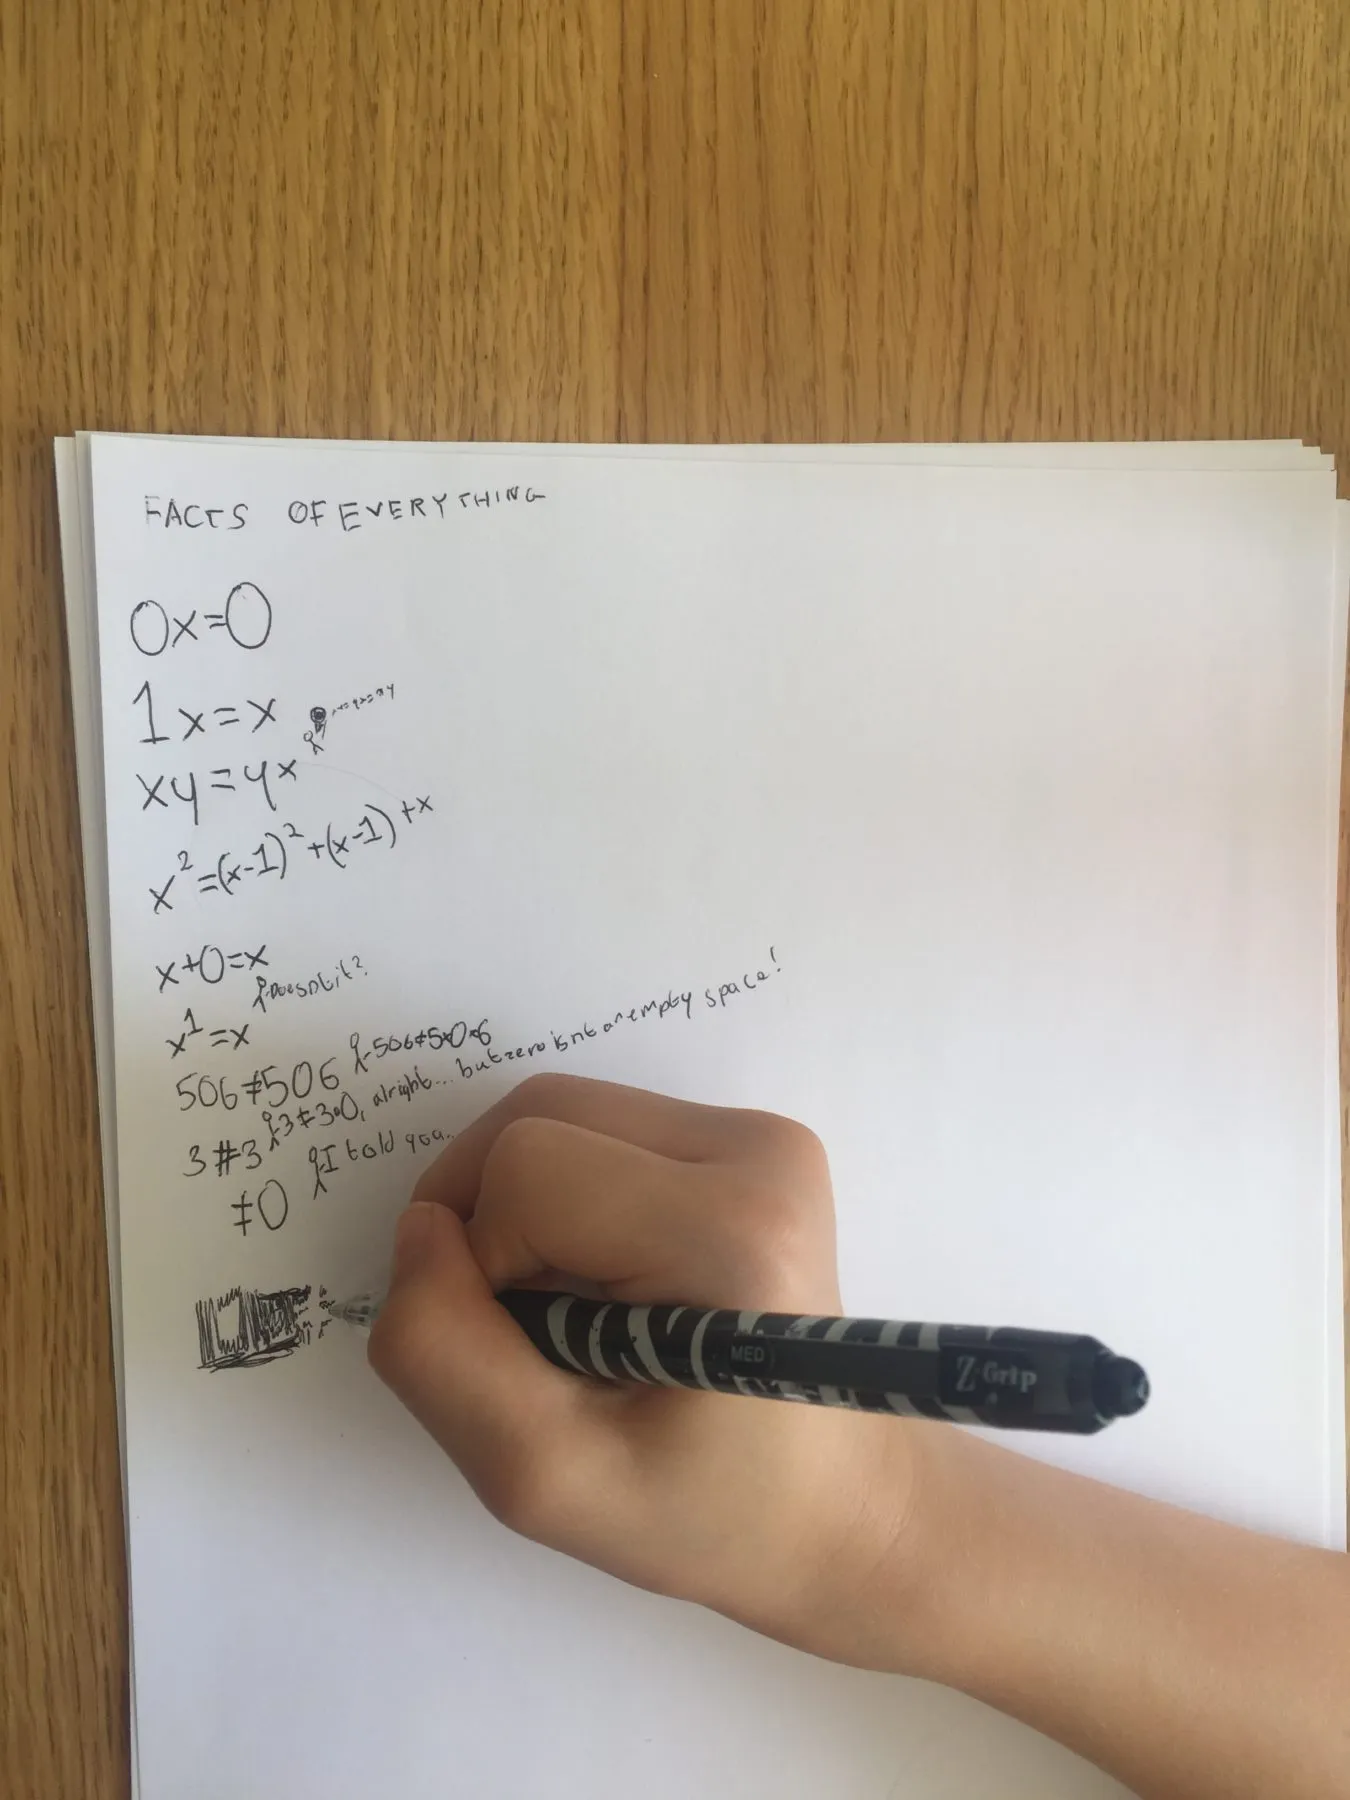 FACTS OF EVERYTHING
0x=0
1x=x
xy=yx
x²=(x-1)²+(x-1)+x
x+0=x
Doesnt it?
x¹=x
506≠506
506≠5·0·6
3≠3
3≠3·0, alright... but zero isnt an empty space!
≠0
I told you..
MED
Z-Grip